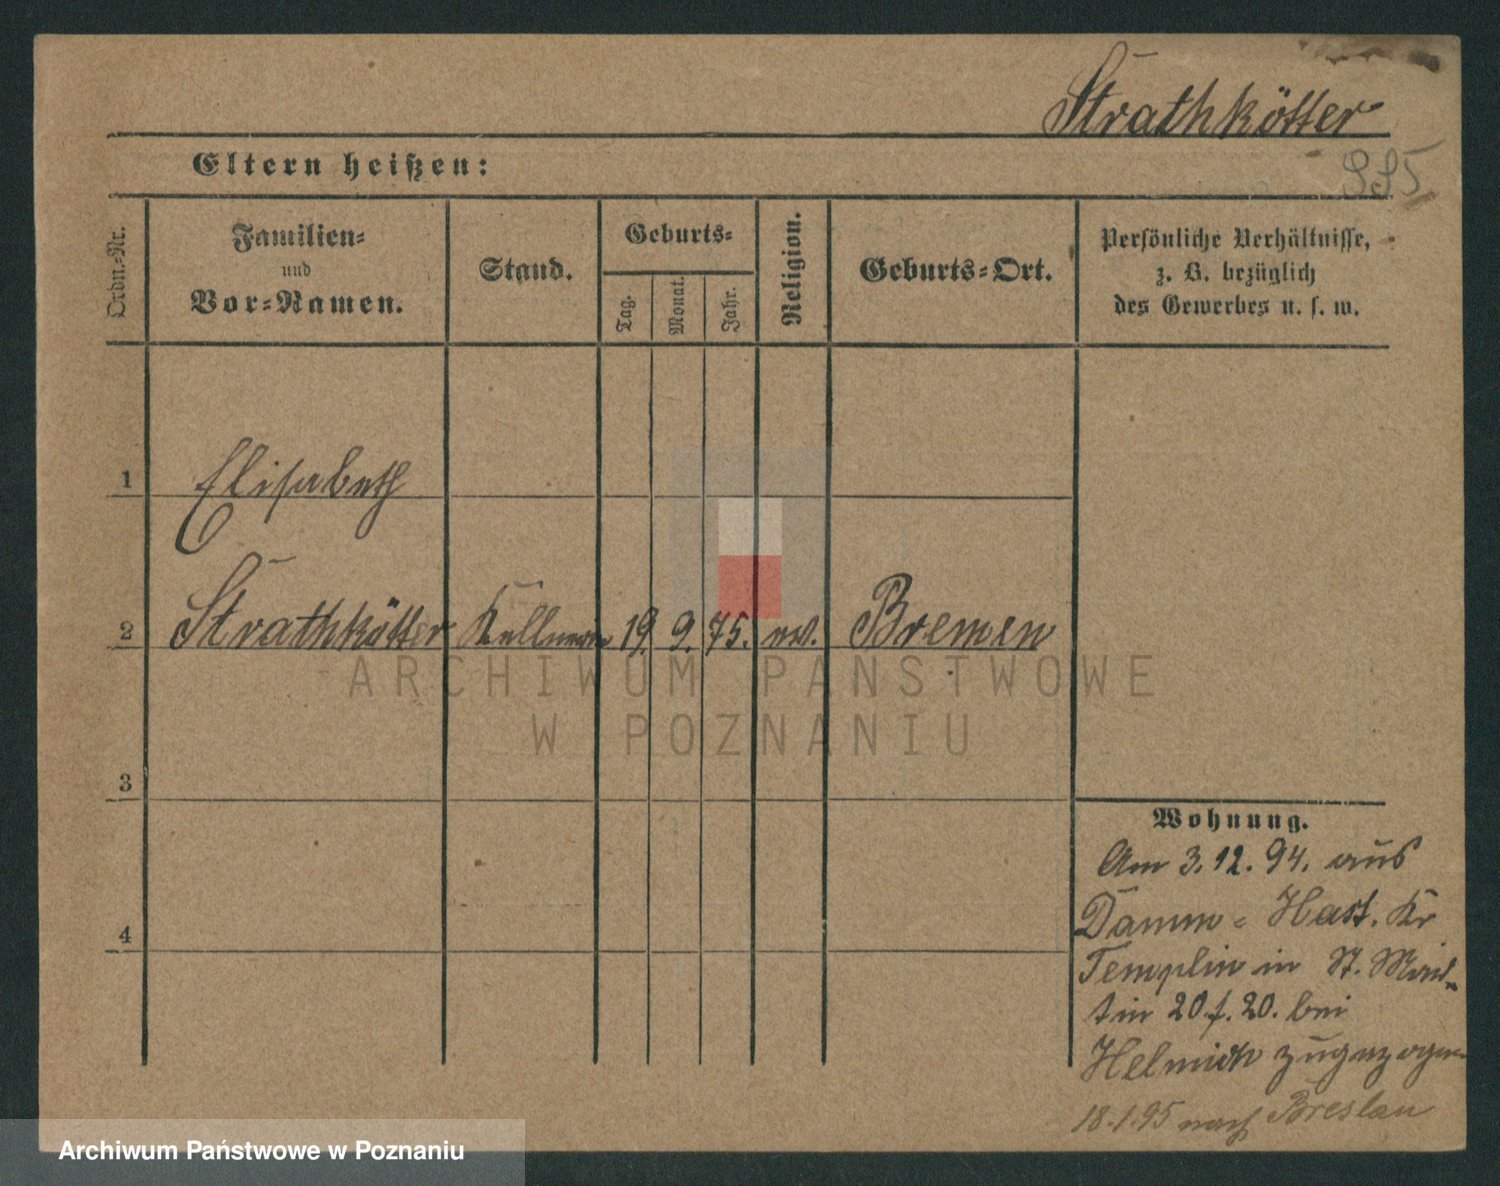 Strathkötter
Eltern heißen:
Ordn.-Nr.
Familien-
und
Vor-Namen.
Stand.
Geburts-
Tag.
Monat.
Jahr.
Religion.
Geburts-Ort.
Persönliche Verhältnisse,
z. B. bezüglich
des Gewerbes u. s. w.
1
Elisabeth
2
Strathkötter Kellnerin 19. 9. 75. ev. Bremen
ARCHIWUM PAŃSTWOWE
W POZNANIU
3
Wohnung.
Am 3.12.94. aus
Damm - Hast. Kr
Templin in St. Mar-
tin 20 f. 20. bei
Helmich zugezogen
18.1.95 nach Breslau
4
Archiwum Państwowe w Poznaniu